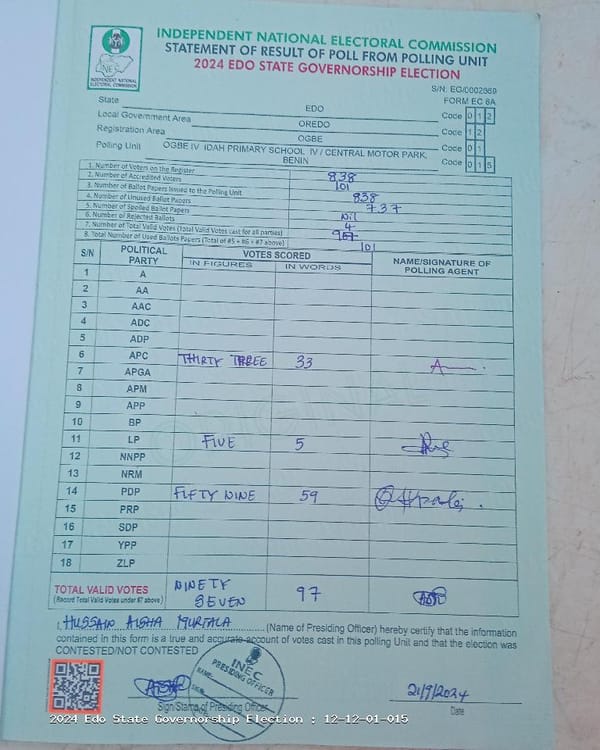 INDEPENDENT NATIONAL ELECTORAL COMMISSION
STATEMENT OF RESULT OF POLL FROM POLLING UNIT
2024 EDO STATE GOVERNORSHIP ELECTION
INEC
INDEPENDENT NATIONAL
ELECTORAL COMMISSION
S/N: EG/0002669
FORM EC 8A
State EDO Code 0 1 2
Local Government Area OREDO Code 1 2
Registration Area OGBE Code 0 1
Polling Unit OGBE IV IDAH PRIMARY SCHOOL IV / CENTRAL MOTOR PARK, BENIN Code 0 1 5
1. Number of Voters on the Register 838
2. Number of Accredited Voters 101
3. Number of Ballot Papers Issued to the Polling Unit 838
4. Number of Unused Ballot Papers 737
5. Number of Spoiled Ballot Papers Nil
6. Number of Rejected Ballots 4
7. Number of Total Valid Votes (Total Valid Votes cast for all parties) 97
8. Total Number of Used Ballots Papers (Total of #5 + #6 + #7 above) 101
S/N POLITICAL PARTY VOTES SCORED NAME/SIGNATURE OF POLLING AGENT
IN FIGURES IN WORDS
1 A
2 AA
3 AAC
4 ADC
5 ADP
6 APC THIRTY THREE 33
7 APGA
8 APM
9 APP
10 BP
11 LP FIVE 5
12 NNPP
13 NRM
14 PDP FIFTY NINE 59
15 PRP
16 SDP
17 YPP
18 ZLP
TOTAL VALID VOTES NINETY SEVEN 97
(Record Total Valid Votes under #7 above)
I, HUSSAIN AISHA MURTALA (Name of Presiding Officer) hereby certify that the information
contained in this form is a true and accurate account of votes cast in this polling Unit and that the election was
CONTESTED/NOT CONTESTED
INEC
PRESIDING OFFICER
NAME:
SIGN:
Sign/Stamp of Presiding Officer
21/9/2024
Date
2024 Edo State Governorship Election : 12-12-01-015